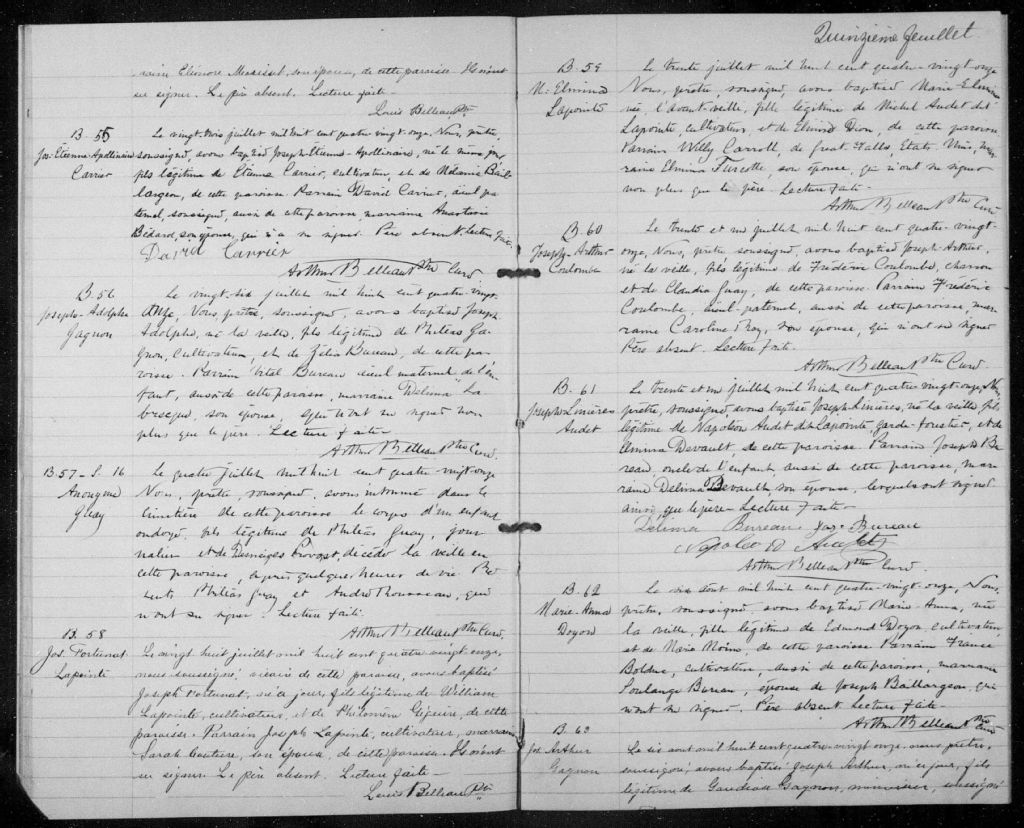 raine Eléonore Mercier, son épouse, de cette paroisse
su signer. Le père absent. Lecture faite.
Louis Belleau Ptre
B. 55
Jos. Etienne Apollinaire
Carrier
Le vingt-trois juillet mil huit cent quatre vingt onze. Nous, prêtre,
soussigné, avons baptisé Joseph-Etienne-Apollinaire, né le même jour
fils légitime de Etienne Carrier, cultivateur, et de Mélanie Bail-
largeon, de cette paroisse. Parrain David Carrier, aïeul pa-
ternel, soussigné, aussi de cette paroisse, marraine Anastasie
Bédard, son épouse, qui n'a su signer. Père absent. Lecture faite.
David Carrier
Arthur Belleau Ptre Curé
B. 56
Joseph-Adolphe
Gagnon
Le vingt-six juillet mil huit cent quatre-vingt-
onze, Nous, prêtre, soussigné, avons baptisé Joseph
Adolphe, né la veille, fils légitime de Philéas Ga-
gnon, cultivateur, et de Zélia Bureau, de cette pa-
roisse. Parrain Vital Bureau aïeul maternel de l'en-
fant, aussi de cette paroisse, marraine Delima La-
brecque, son épouse, qui n'ont su signer non
plus que le père. Lecture faite.
Arthur Belleau Ptre Curé.
B. 57 - S. 16
Anonyme
Guay
Le quatre juillet mil huit cent quatre-vingt-onze
Nous, prêtre soussigné, avons inhumé dans le
cimetière de cette paroisse le corps d'un enfant
ondoyé, fils légitime de Philéas Guay, jour-
nalier et de Demèges Provost, décédé la veille en
cette paroisse, après quelques heures de vie. Pré-
sents Philéas Guay et André Rousseau, qui
n'ont su signer. Lecture faite.
Arthur Belleau Ptre Curé.
B. 58
Jos. Fortunat
Lapointe
Le vingt huit juillet mil huit cent quatre vingt onze,
nous soussigné, vicaire de cette paroisse, avons baptisé
Joseph Fortunat, né ce jour, fils légitime de William
Lapointe, cultivateur, et de Philomène Giguère, de cette
paroisse. Parrain Joseph Lapointe, cultivateur, marraine
Sarah Couture, son épouse, de cette paroisse
su signer. Le père absent. Lecture faite.
Louis Belleau Ptre
Quinzième feuillet
B. 59
M. Elmina
Lapointe
Le trente juillet mil huit cent quatre-vingt onze
Nous, prêtre, soussigné, avons baptisé Marie-Elmina
née, l'avant-veille, fille légitime de Michel Audet dit
Lapointe, cultivateur, et de Elmina Dion, de cette paroisse,
Parrain Willy Carroll, de Great Falls, Etats Unis, mar-
raine Elmina Turcotte, son épouse, qui n'ont su signer
non plus que le père. Lecture faite.
Arthur Belleau Ptre Curé
B. 60
Joseph-Arthur
Coulombe
Le trente et un juillet mil huit cent quatre-vingt-
onze, Nous, prêtre soussigné, avons baptisé Joseph Arthur,
né la veille, fils légitime de Frédéric Coulombe, charron
et de Claudia Guay, de cette paroisse. Parrain Frédéric
Coulombe, aïeul paternel, aussi de cette paroisse, mar-
raine Caroline Roy, son épouse, qui n'ont su signer
Père absent. Lecture faite.
Arthur Belleau Ptre Curé.
B. 61
Joseph Linières
Audet
Le trente et un juillet mil huit cent quatre vingt onze, Nous
prêtre, soussigné, avons baptisé Joseph Linières, né la veille, fils
légitime de Napoléon Audet dit Lapointe, garde-forestier, et de
Emma Devault, de cette paroisse. Parrain Joseph Bu-
reau, oncle de l'enfant, aussi de cette paroisse, mar-
raine Delima Devault, son épouse, lesquels ont signé
ainsi que le père. Lecture faite.
Delima Bureau Jos. Bureau
Napoleon Audet
Arthur Belleau Ptre Curé.
B. 62
Marie-Anna
Doyon
Le six août mil huit cent quatre-vingt-onze, Nous,
prêtre, soussigné, avons baptisé Marie-Anna, née
la veille, fille légitime de Edmond Doyon, cultivateur,
et de Marie Morin, de cette paroisse. Parrain France
Bolduc, cultivateur, aussi de cette paroisse, marraine
Soulange Bureau, épouse de Joseph Baillargeon, qui
n'ont su signer. Père absent. Lecture faite.
Arthur Belleau Ptre Curé
B. 63
Jos. Arthur
Gagnon
Le six août mil huit cent quatre-vingt-onze, nous prêtre,
soussigné, avons baptisé Joseph Arthur, né ce jour, fils
légitime de Gaudiose Gagnon, menuisier, soussigné